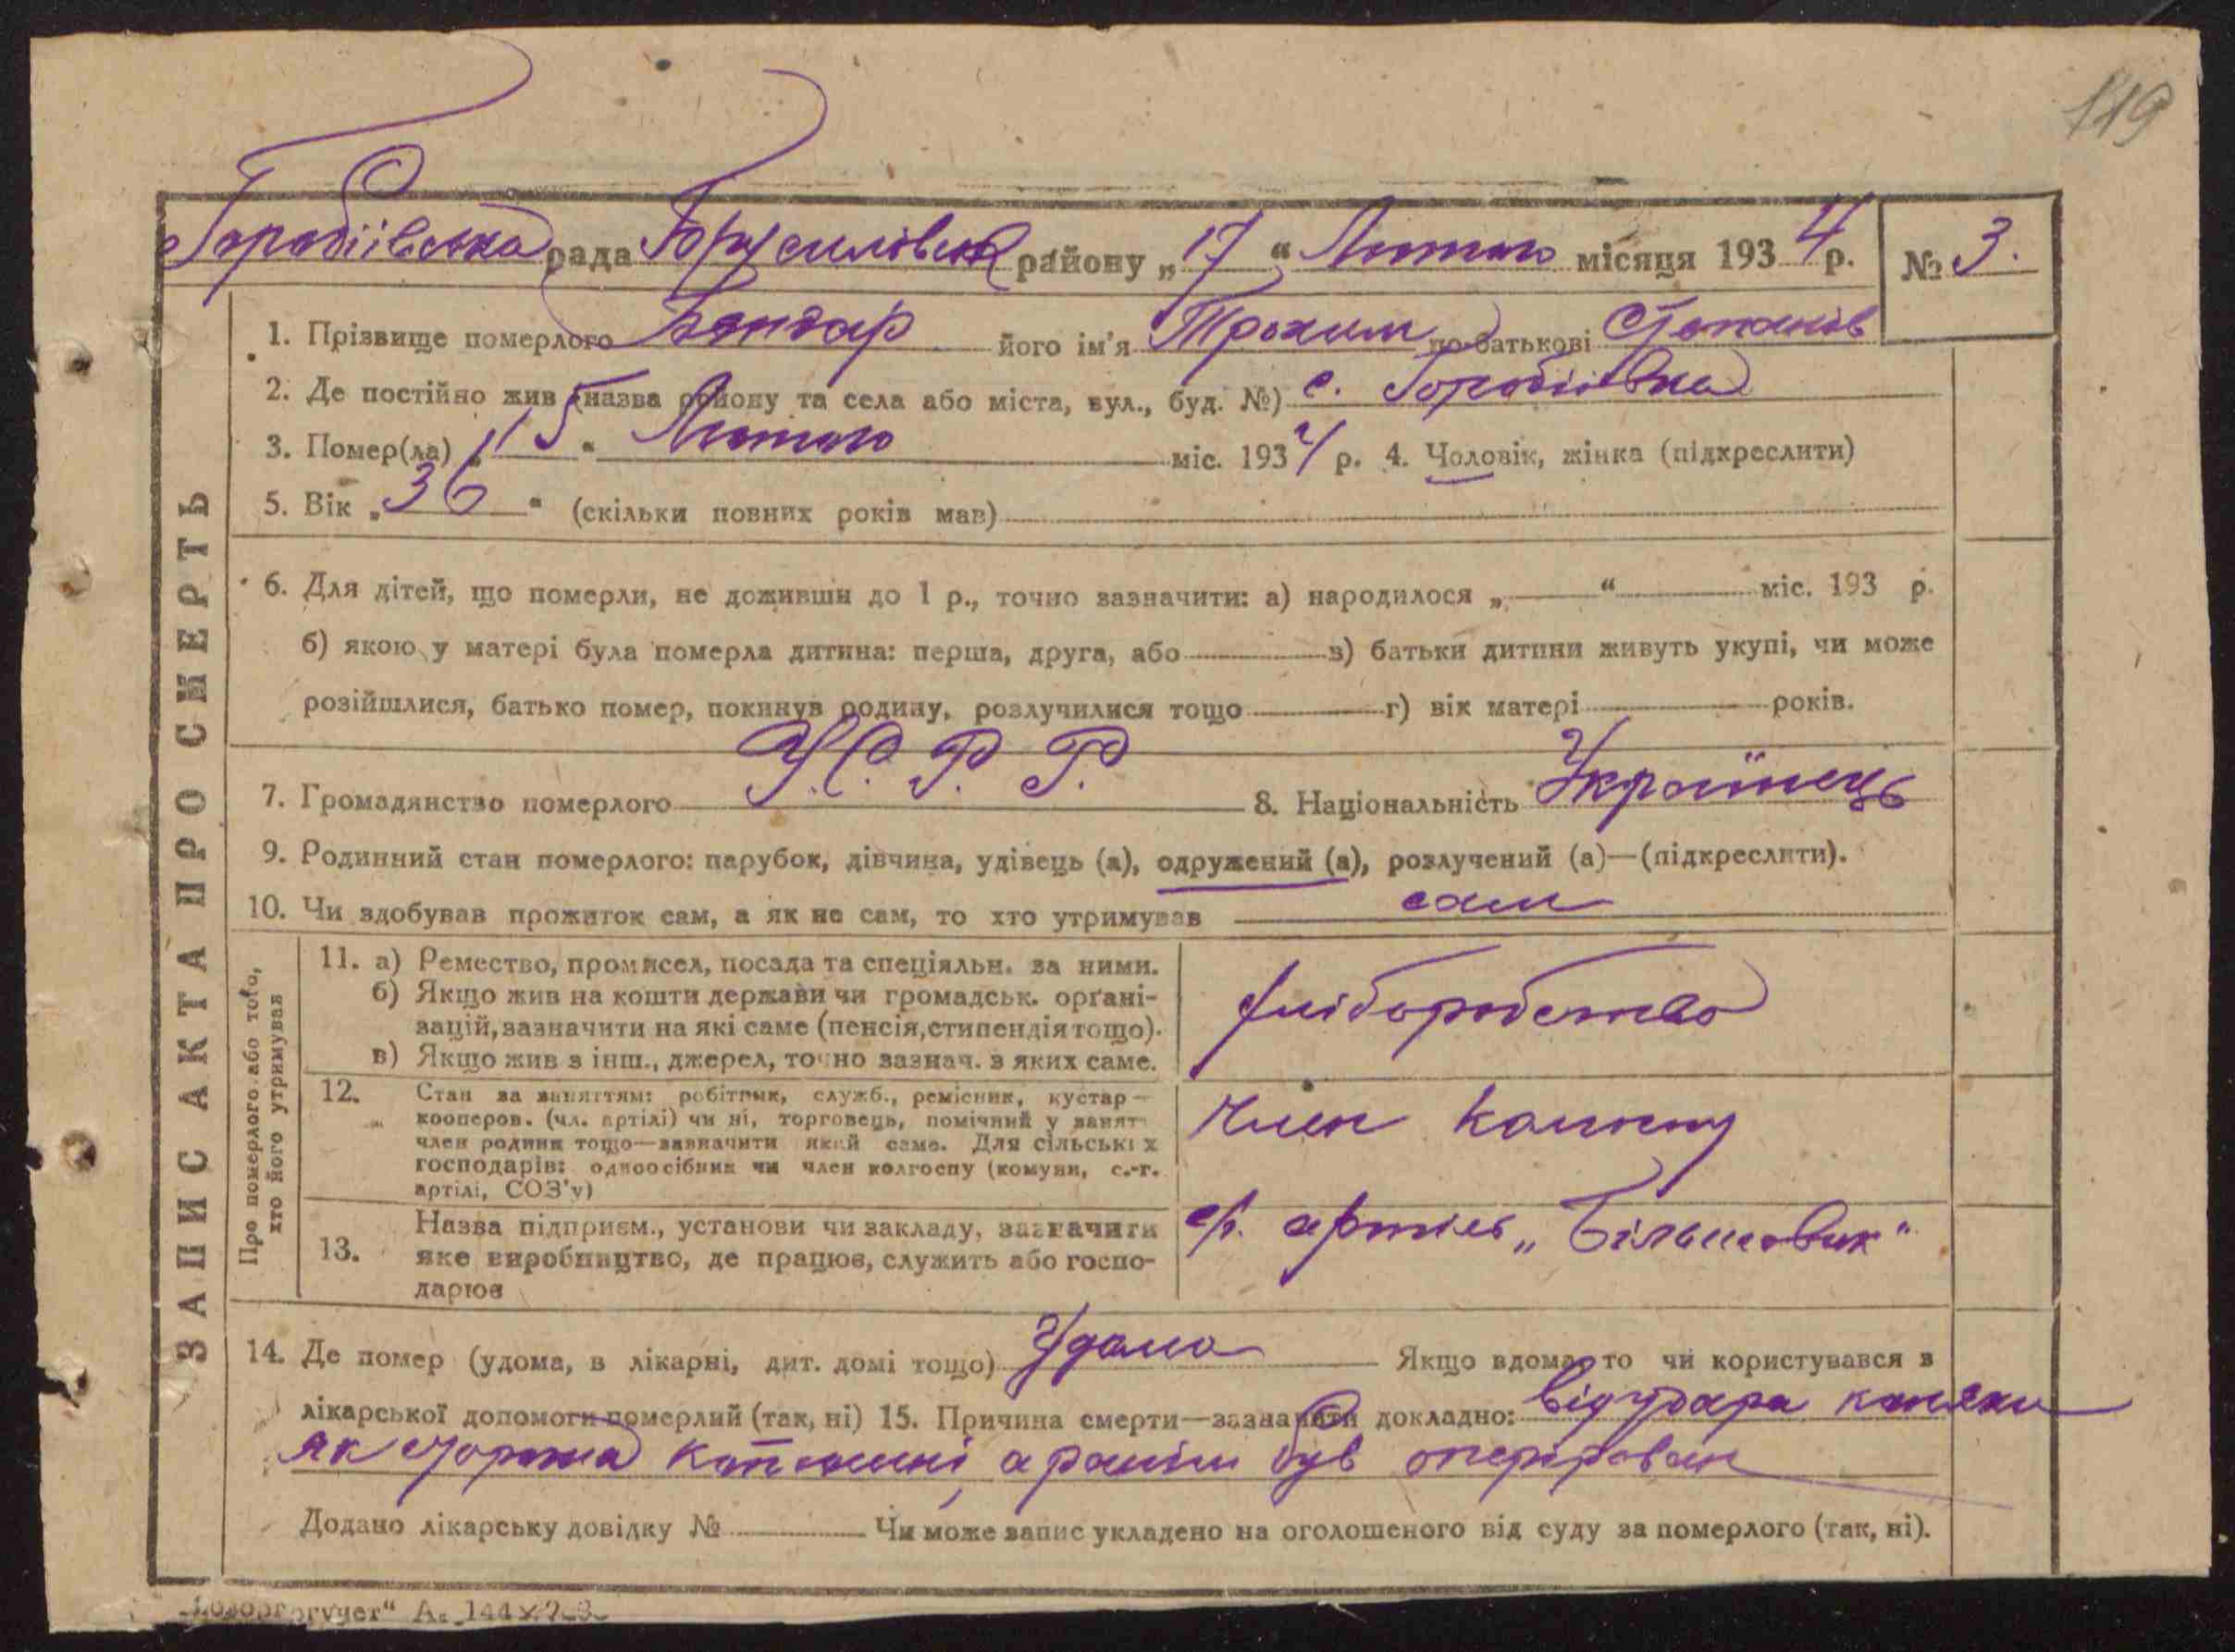 119
Горобіївська рада Брусилівськ району „17“ Лютого місяця 1934 р. № 3.
1. Прізвище померлого Бондар його ім'я Трохим по батькові Степанов
2. Де постійно жив (назва району та села або міста, вул., буд. №) с. Горобіївка
3. Помер(ла) „15“ Лютого міс. 1934 р. 4. Чоловік, жінка (підкреслити)
5. Вік „36“ (скільки повних років мав)
6. Для дітей, що померли, не доживши до 1 р., точно зазначити: а) народилося „ “ міс. 193 р.
б) якою у матері була померла дитина: перша, друга, або в) батьки дитини живуть укупі, чи може
розійшлися, батько помер, покинув родину, розлучилися тощо г) вік матері років.
7. Громадянство померлого У.С.Р.Р. 8. Національність Українець
9. Родинний стан померлого: парубок, дівчина, удівець (а), одружений (а), розлучений (а)—(підкреслити).
10. Чи здобував прожиток сам, а як не сам, то хто утримував сам
11. а) Ремество, промисел, посада та спеціяльн. за ними.
б) Якщо жив на кошти держави чи громадськ. орґані-
зацій, зазначити на які саме (пенсія, стипендія тощо).
в) Якщо жив з інш., джерел, точно зазнач. з яких саме.
хліборобство
12. Стан за заняттям: робітник, служб., ремісник, кустар—
кооперов. (чл. артілі) чи ні, торговець, помічний у занят
член родини тощо—зазначити який саме. Для сільських
господарів: одноосібник чи член колгоспу (комуни, с.-г.
артілі, СОЗ'у)
член колгоспу
13. Назва підприєм., установи чи закладу, зазначити
яке виробництво, де працює, служить або госпо-
дарює
артіль „Більшовик“
14. Де помер (удома, в лікарні, дит. домі тощо) Удома Якщо вдома, то чи користувався з
лікарської допомоги померлий (так, ні) 15. Причина смерти—зазначити докладно: від удара
як а раніш був
Додано лікарську довідку № Чи може запис укладено на оголошеного від суду за померлого (так, ні).
ЗАПИС АКТА ПРО СМЕРТЬ
Про померлого або того,
хто його утримував